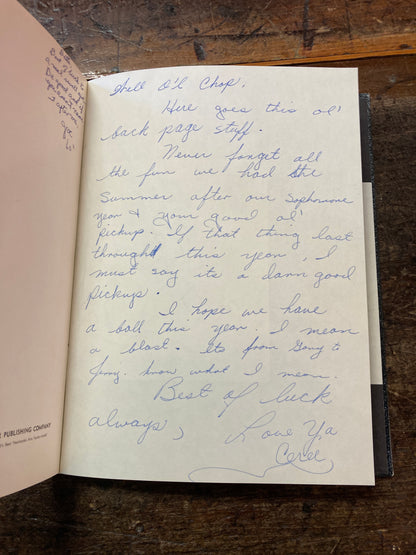 Well O'l Chop,
Here goes this ol'
back page stuff.
Never forget all
the fun we had the
Summer after our Sophomore
year & your good ol'
pickup. If that thing last
throught this year, I
must say its a damn good
pickup.
I hope we have
a ball this year. I mean
a blast. Its from Gony to
Jenny. know what I mean.
Best of luck
always,
Love Ya
PUBLISHING COMPANY